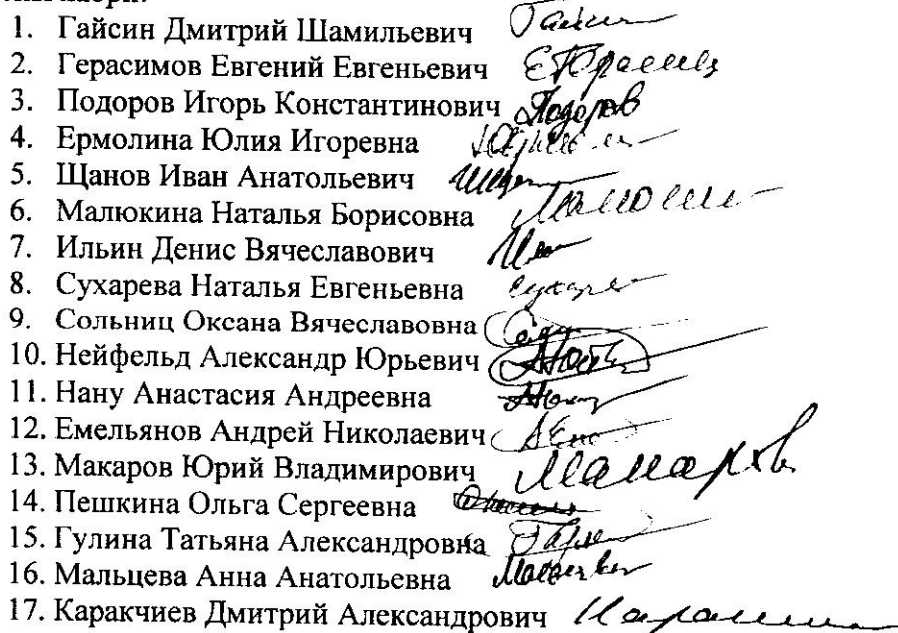 1. Гайсин Дмитрий Шамильевич
2. Герасимов Евгений Евгеньевич
3. Подоров Игорь Константинович Подоров
4. Ермолина Юлия Игоревна
5. Щанов Иван Анатольевич
6. Малюкина Наталья Борисовна
7. Ильин Денис Вячеславович
8. Сухарева Наталья Евгеньевна
9. Сольниц Оксана Вячеславовна
10. Нейфельд Александр Юрьевич
11. Нану Анастасия Андреевна
12. Емельянов Андрей Николаевич
13. Макаров Юрий Владимирович Макаров
14. Пешкина Ольга Сергеевна
15. Гулина Татьяна Александровна
16. Мальцева Анна Анатольевна
17. Каракчиев Дмитрий Александрович